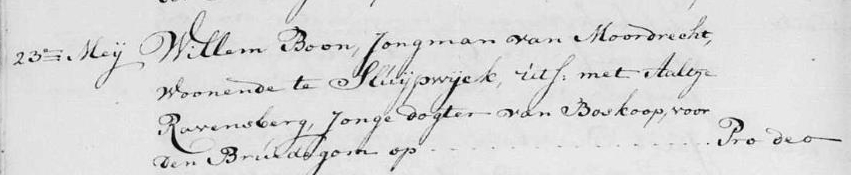 23en Meij Willem Boon, Jongman van Moordrecht,
woonende te Sluijpwijck, uts: met Aaltje
Ravensberg, Jonge dogter van Boskoop, voor
den Bruidegom op . . . . . . . . . . . . . . . . Pro deo